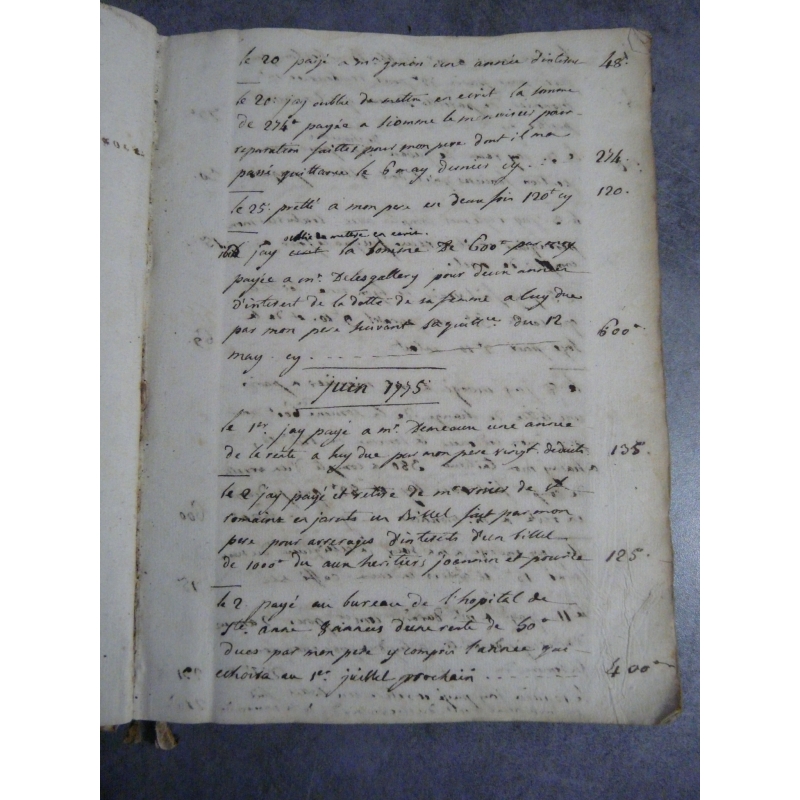 le 20 payé a mr. une année d'interes 48.
le 20. jay oublie de mettre en ecrit la somme
de 274# payée a le menuisier pour
reparation faittes pour mon pere dont il ma
passé quittance le 6 may dernier cy . . . 274.
le 25. pretté a mon pere en deux fois 120# cy 120.
oublie de mettre en ecrit.
ibid jay ecrit la somme de 600# par
payée a mr. Delesgallery pour deux années
d'interest de la dotte de sa femme a luy due
par mon pere suivant sa quittce. du 12 600#
may. cy . . . .
juin 1775
le 1er. jay payé a mr. une année
de la rente a luy due par mon pere vingt. deduits 135.
le 2 jay payé et retiré de mr. de st
romains en un Billet fait par mon
pere pour arrerages d'interests d'un billet
de 1000# du aux heritiers joannin et 125.
le 2 payé au bureau de l'hopital de
ste. anne 8 années d'une rente de 50#
dues par mon pere y compris l'année qui
echoira au 1er. juillet prochain . . . 400#